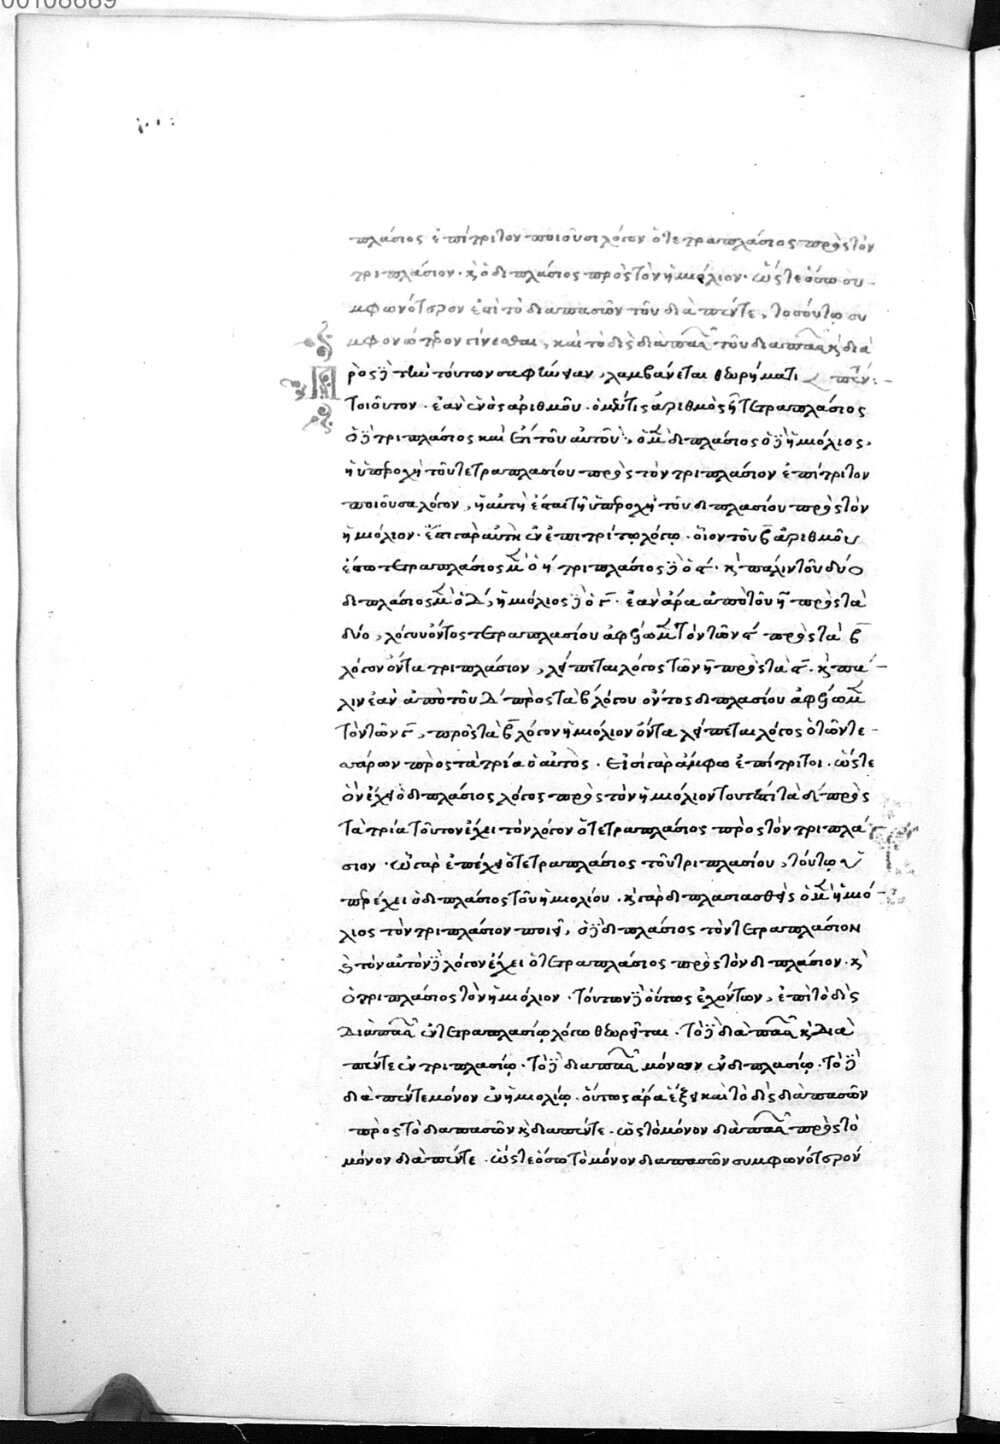 00108689
πλάσιος ἐπίτριτον ποιοῦσι λόγον ὅ τε τραπλάσιος πρὸς τὸν
τριπλάσιον· κ̀ ὁ διπλάσιος πρὸς τὸν ἡμιόλιον· ὥς τε ὅσω συ-
μφωνότερον ἐστὶ τὸ διαπασῶν τοῦ διὰ πέντε, τοσούτω συ
μφονώτερον γίνεσθαι, καὶ τὸ δὶς διὰπασ τοῦ διαπασ κ̀ διὰ
πέν:-
Πρὸς δὲ τὴν τούτων σαφήνειαν, λαμβάνεται θεωρήματι
τοιοῦτον· ἐὰν ἑνὸς ἀριθμοῦ· ὁ μέν τις ἀριθμὸς ᾖ τετραπλάσιος
ὁ δὲ τριπλάσιος καὶ ἔτι τοῦ αὐτοῦ, ὁ μὲν διπλάσιος ὁ δὲ ἡμιόλιος,
ἡ ὑπεροχὴ τοῦ τετραπλασίου πρὸς τὸν τριπλάσιον ἐπίτριτον
ποιοῦσα λόγον, ἡ αὐτὴ ἔσται τῇ ὑπεροχῇ τοῦ διπλασίου πρὸς τὸν
ἡμιόλιον· ἔστι γὰρ αὐτὴ ἐν ἐπιτρίτῳ λόγῳ· οἷον τοῦ β ἀριθμοῦ
ἔστω τετραπλάσιος μὲν ὁ η τριπλάσιος δὲ ὁ ς· κ̀ πάλιν τοῦ δύο
διπλάσιος μὲν ὁ δ, ἡμιόλιος δὲ ὁ γ· ἐὰν ἄρα ἀπὸ τοῦ η πρὸς τὰ
δύο, λόγου ὄντος τετραπλασίου ἀφέλωμεν τὸν τῶν ς πρὸς τὰ β
λόγον ὄντα τριπλάσιον, λείπεται λόγος τῶν η πρὸς τὰ ς· κ̀ πά-
λιν ἐὰν ἀπὸ τοῦ δ πρὸς τὰ β λόγου ὄντος διπλασίου ἀφέλωμεν
τὸν τῶν γ, πρὸς τὰ β λόγον ἡμιόλιον ὄντα λείπεται λόγος ὁ τῶν τε-
σσάρων πρὸς τὰ τρία ὁ αὐτός· εἰσὶ γὰρ ἄμφω ἐπίτριτοι· ὥς τε
ὃν ἔχει ὁ διπλάσιος λόγος πρὸς τὸν ἡμιόλιον τουτέστι τὰ δ πρὸς
τὰ τρία τοῦτον ἔχει τὸν λόγον ὁ τετραπλάσιος πρὸς τὸν τριπλά
σιον· ᾧ γὰρ ὑπερέχει ὁ τετραπλάσιος τοῦ τριπλασίου, τούτω ὑ
περέχει ὁ διπλάσιος τοῦ ἡμιολίου· κ̀ γὰρ διπλασιασθεὶς ὁ μὲν ἡμιό
λιος τὸν τριπλάσιον ποιεῖ, ὁ δὲ διπλάσιος τὸν τετραπλάσιον
τὸν αὐτὸν δὲ λόγον ἔχει ὁ τετραπλάσιος πρὸς τὸν διπλάσιον· κ̀
ὁ τριπλάσιος τὸν ἡμιόλιον· τούτων δὲ οὕτως ἐχόντων, ἐπὶ τὸ δὶς
διὰπασ ἐν τετραπλασίῳ λόγῳ θεωρεῖται· τὸ δὲ διὰπασ κ̀ διὰ
πέντε ἐν τριπλασίῳ· τὸ δὲ διαπασ μόνον ἐν διπλασίῳ· τὸ δὲ
διὰ πέντε μόνον ἐν ἡμιολίῳ· οὕτως ἄρα ἕξει καὶ τὸ δὶς διὰ πασῶν
πρὸς τὸ διαπασῶν κ̀ διαπέντε· ὡς τὸ μόνον διὰπασ πρὸς τὸ
μόνον διὰ πέντε· ὥς τε ὅσω τὸ μόνον διαπασῶν συμφωνότερόν